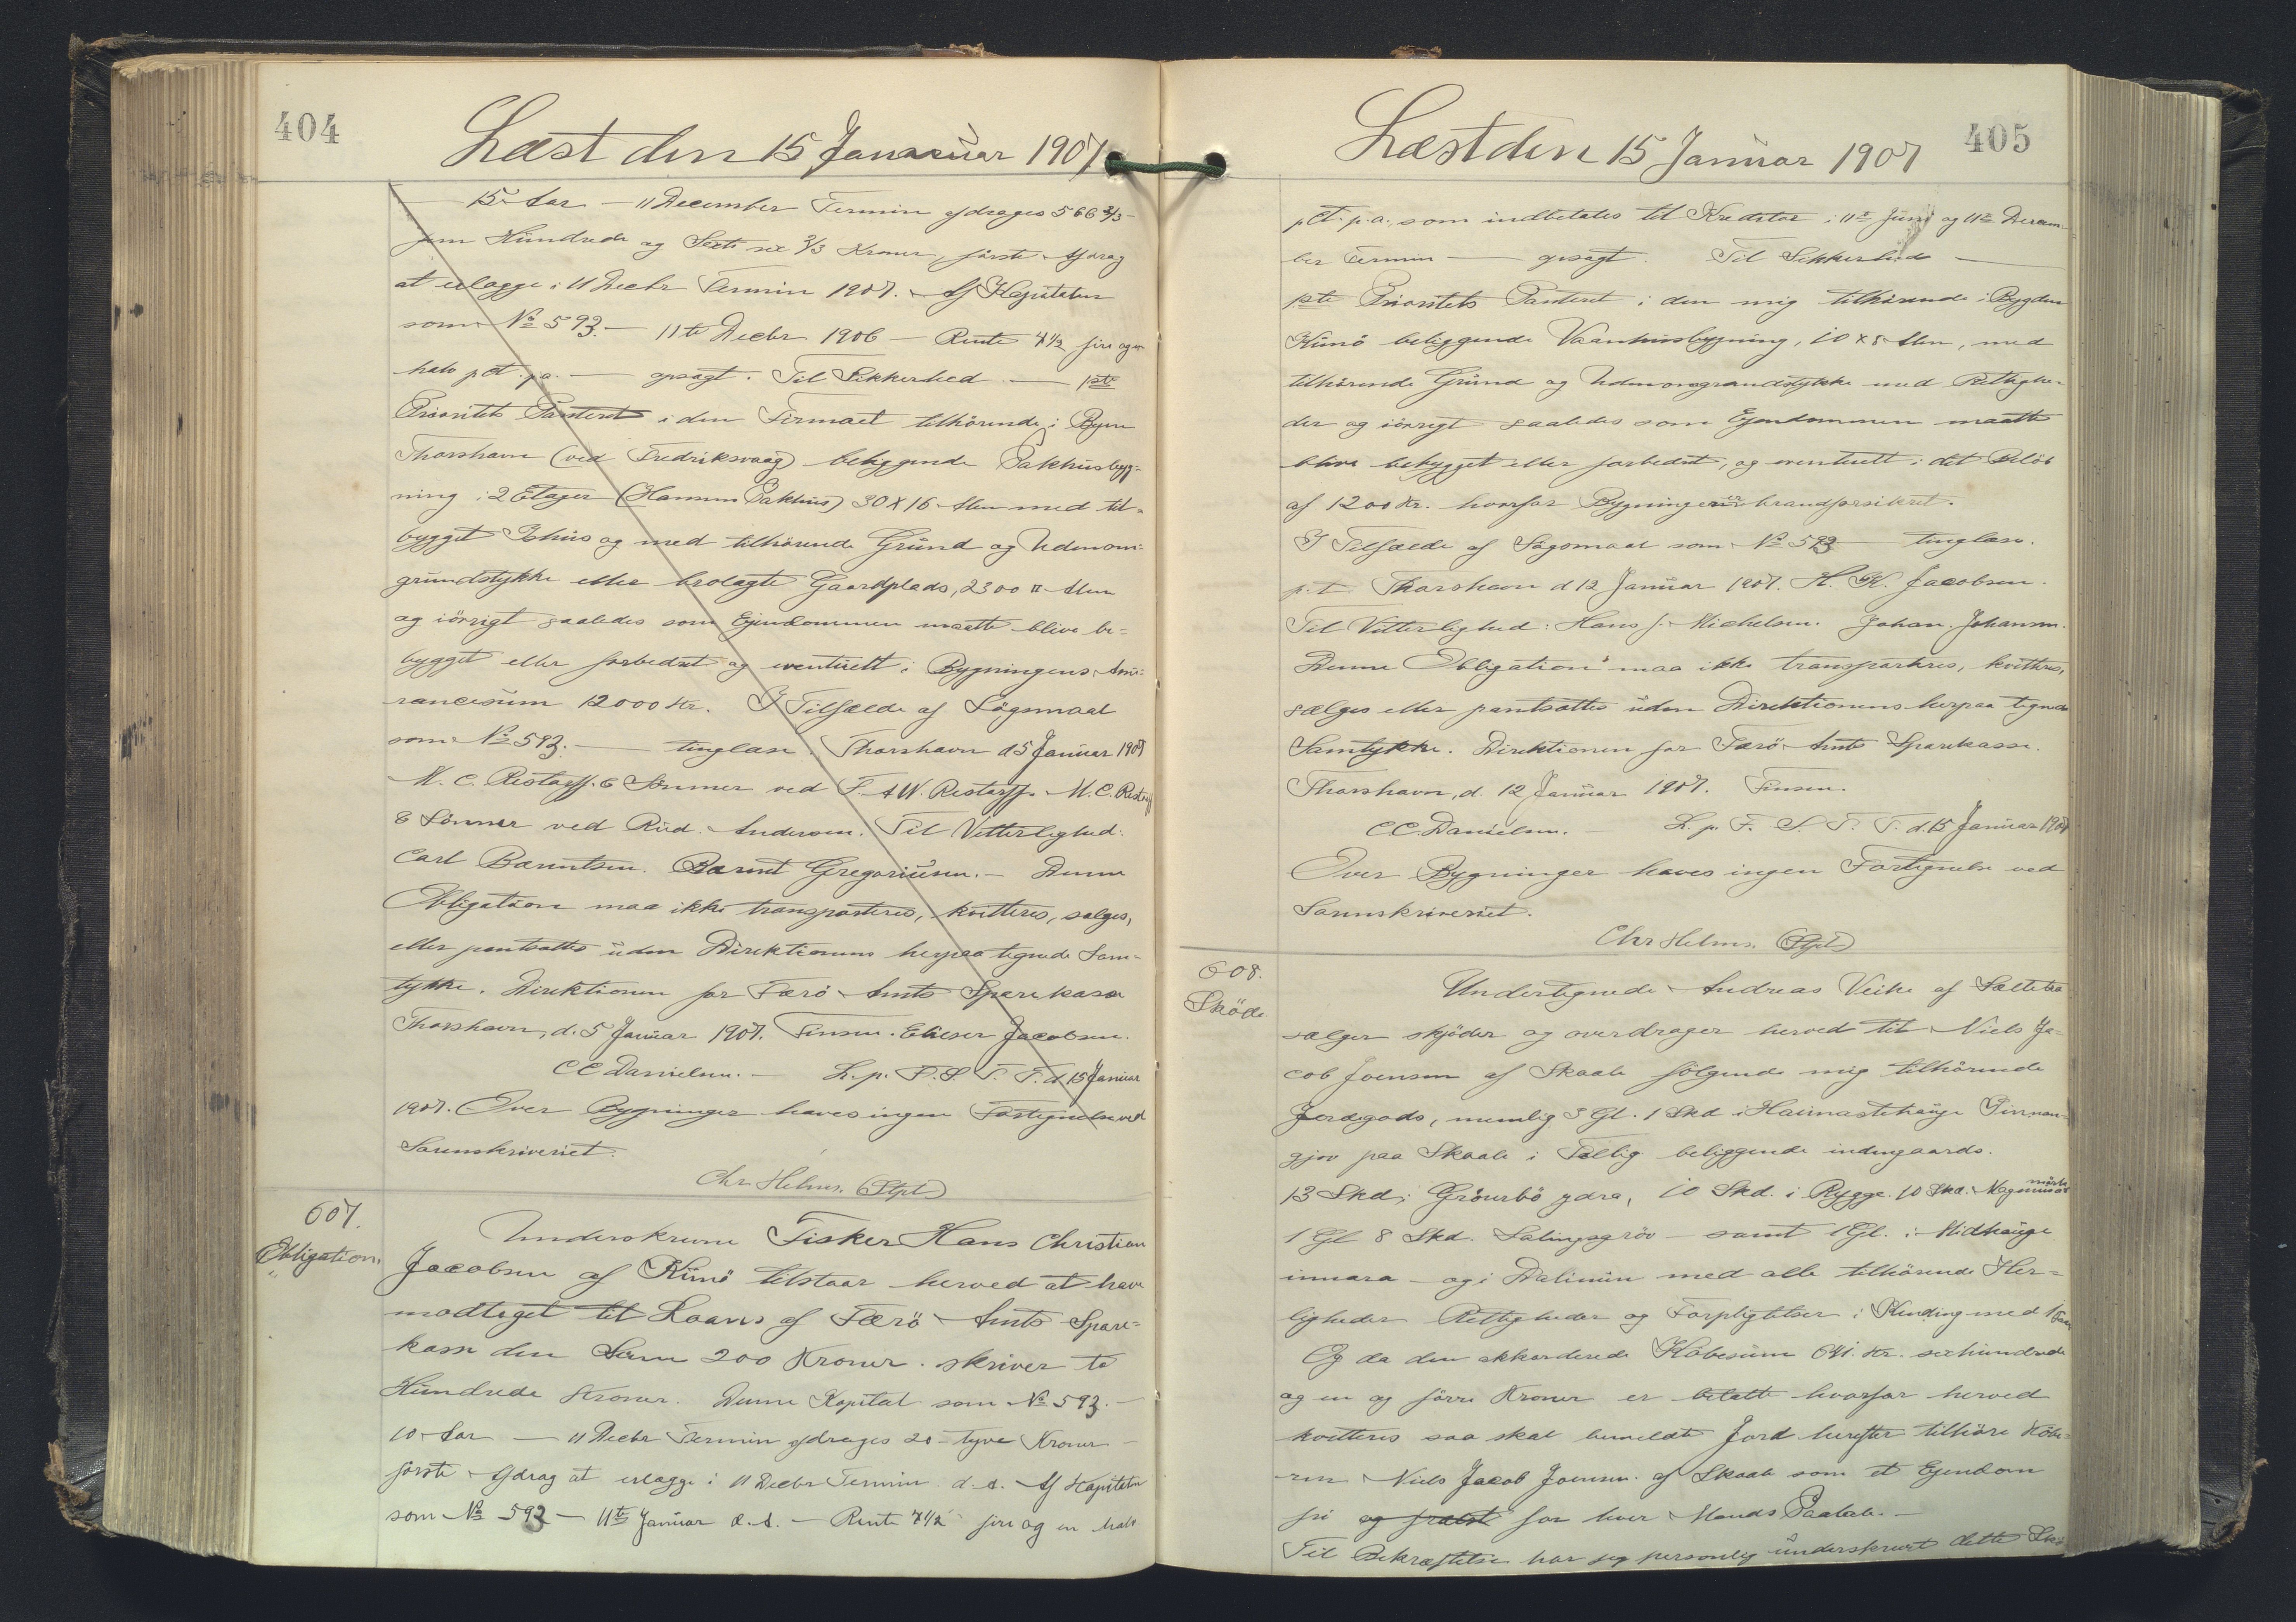 404
Læst den 15 Januar 1907
15 Aar – 11 December Termin afdrages 566 2/3 –
fem Hundrede og Sexti sex 2/3 Kroner, første Afdrag
at erlægge i 11 Decbr Termin 1907. Af Kapitalen
som No 593. – 11te Decbr 1906 – Rente 4 1/2 fire og en
halv pCt. p.a. – opsagt. Til Sikkerhed – 1ste
Prioritets Panteret i den Firmaet tilhørende i Byen
Thorshavn (ved Fredriksvaag) beliggende Pakhusbyg-
ning i 2 Etager (Hansens Pakhus) 30 x 16 Alen med til-
bygget Ishus og med tilhørende Grund og Udenoms-
grundstykke eller brolagte Gaardplads, 2300 □ Alen
og iøvrigt saaledes som Ejendommen maatte blive be-
bygget eller forbedret og eventuelt i Bygningens Assu-
rancesum 12000 Kr. I Tilfælde af Søgsmaal
som No 593. – tinglæse. Thorshavn d 5 Januar 1907
M. C. Restorff & Sønner ved F. & W. Restorff. M. C. Restorff
& Sønner ved Rud. Andersen. Til Vitterlighed:
Carl Barentsen. Barent Gregoriusen. – Denne
Obligation maa ikke transporteres, kvitteres, sælges,
eller pantsættes uden Direktionens herpaa tegnede Sam-
tykke. Direktionen for Færø Amts Sparekasse
Thorshavn, d. 5 Januar 1907. Finsen. Elieser Jacobsen.
C C Danielsen. – L. p. F. S. T. T. d 15 Januar
1907. Over Bygninger haves ingen Fortegnelse ved
Sorenskriveriet.
Chr Helms. (Stpl)
607.
Obligation.
Underskrevne Fisker Hans Christian
Jacobsen af Kunø tilstaar herved at have
modtaget til Laans af Færø Amts Spare-
kasse den Sum 200 Kroner. skriver to
Hundrede Kroner. Denne Kapital som No 593. –
10 Aar – 11 Decbr Termin afdrages 20 – tyve Kroner –
første Afdrag at erlægge i 11 Decbr Termin d. A. Af Kapitalen
som No 592 – 11te Januar d. A. – Rente 4 1/2 fire og en halv
405
Læst den 15 Januar 1907
pCt. p.a. som indbetales til Kreditor i 11te Juni og 11te Decem-
ber Termin – opsagt. Til Sikkerhed –
1ste Prioritets Panteret i den mig tilhørende i Bygden
Kunø beliggende Vaanhusbygning, 10 x 8 Alen, med
tilhørende Grund og Udenomsgrundstykke med Rettighe-
der og iøvrigt saaledes som Ejendommen maatte
blive bebygget eller forbedret, og eventuelt i det Beløb
af 1200 Kr. hvorfor Bygningen er brandforsikret.
I Tilfælde af Søgsmaal som No 593 – tinglæse.
p.t. Thorshavn d 12 Januar 1907. H. K. Jacobsen.
Til Vitterlighed: Hans J. Michelsen. Johan. Johansen.
Denne Obligation maa ikke transporteres, kvitteres,
sælges eller pantsættes uden Direktionens herpaa tegnede
Samtykke. Direktionen for Færø Amts Sparekasse.
Thorshavn, d. 12 Januar 1907. Finsen.
C.C. Danielsen. – L. p. F. S. T. T. d. 15 Januar 1907
Over Bygninger haves ingen Fortegnelse ved
Sorenskriveriet.
Chr Helms. (Stpl)
608.
Skøde
Undertegnede Andreas Veihe af
sælger skjøder og overdrager herved til Niels Ja-
cob Joensen af Skaale følgende mig tilhørende
Jordegods, nemlig 3 Gl. 1 Skd i
paa Skaale i beliggende indengaards.
13 Skd i ydra, 10 Skd. i Rygge. 10 Skd.
1 Gl 8 Skd. – samt 1 Gl. i Midhauge
innara – og i med alle tilhørende Her-
ligheder Rettigheder og Forpligtelser i Kunding med
Og da den akkorderede Købesum 641. Kr. sexhundrede
og en og førre Kroner er betalt hvorfor herved
kvitteres saa skal bemeldte Jord herefter tilhøre Købe-
ren Niels Jacob Joensen af Skaale som et Ejendom
fri og frelst for hver Mands Paatale. –
Til Bekræftelse har jeg personlig underskrevet dette Skø-